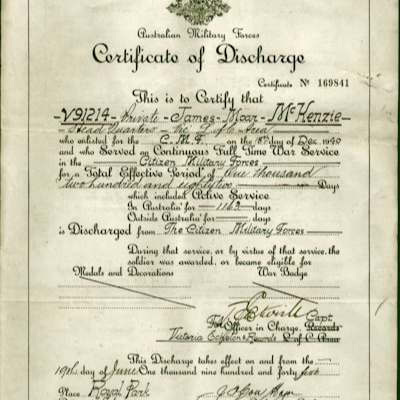 Australian Military Forces
Certificate of Discharge
Certificate No 169841
This is to Certify that
V91214 - Private - James - Moar - McKenzie
Head Quarters - Vic L of C Area
who enlisted for the C.M.F. on the 15th day of Dec 1940
and who Served on Continuous Full Time War Service
in the Citizen Military Forces
for a Total Effective Period of One thousand
two hundred and eighty two Days
which included Active Service
In Australia for 1163 days
Outside Australia for days
is Discharged from The Citizen Military Forces
During that service, or by virtue of that service, the
soldier was awarded, or became eligible for
Medals and Decorations War Badge
Capt
For Officer in Charge, Records
Victoria Echelon & Records L of C Area
This Discharge takes effect on and from the
19th day of June One thousand nine hundred and forty five
Place Royal Park